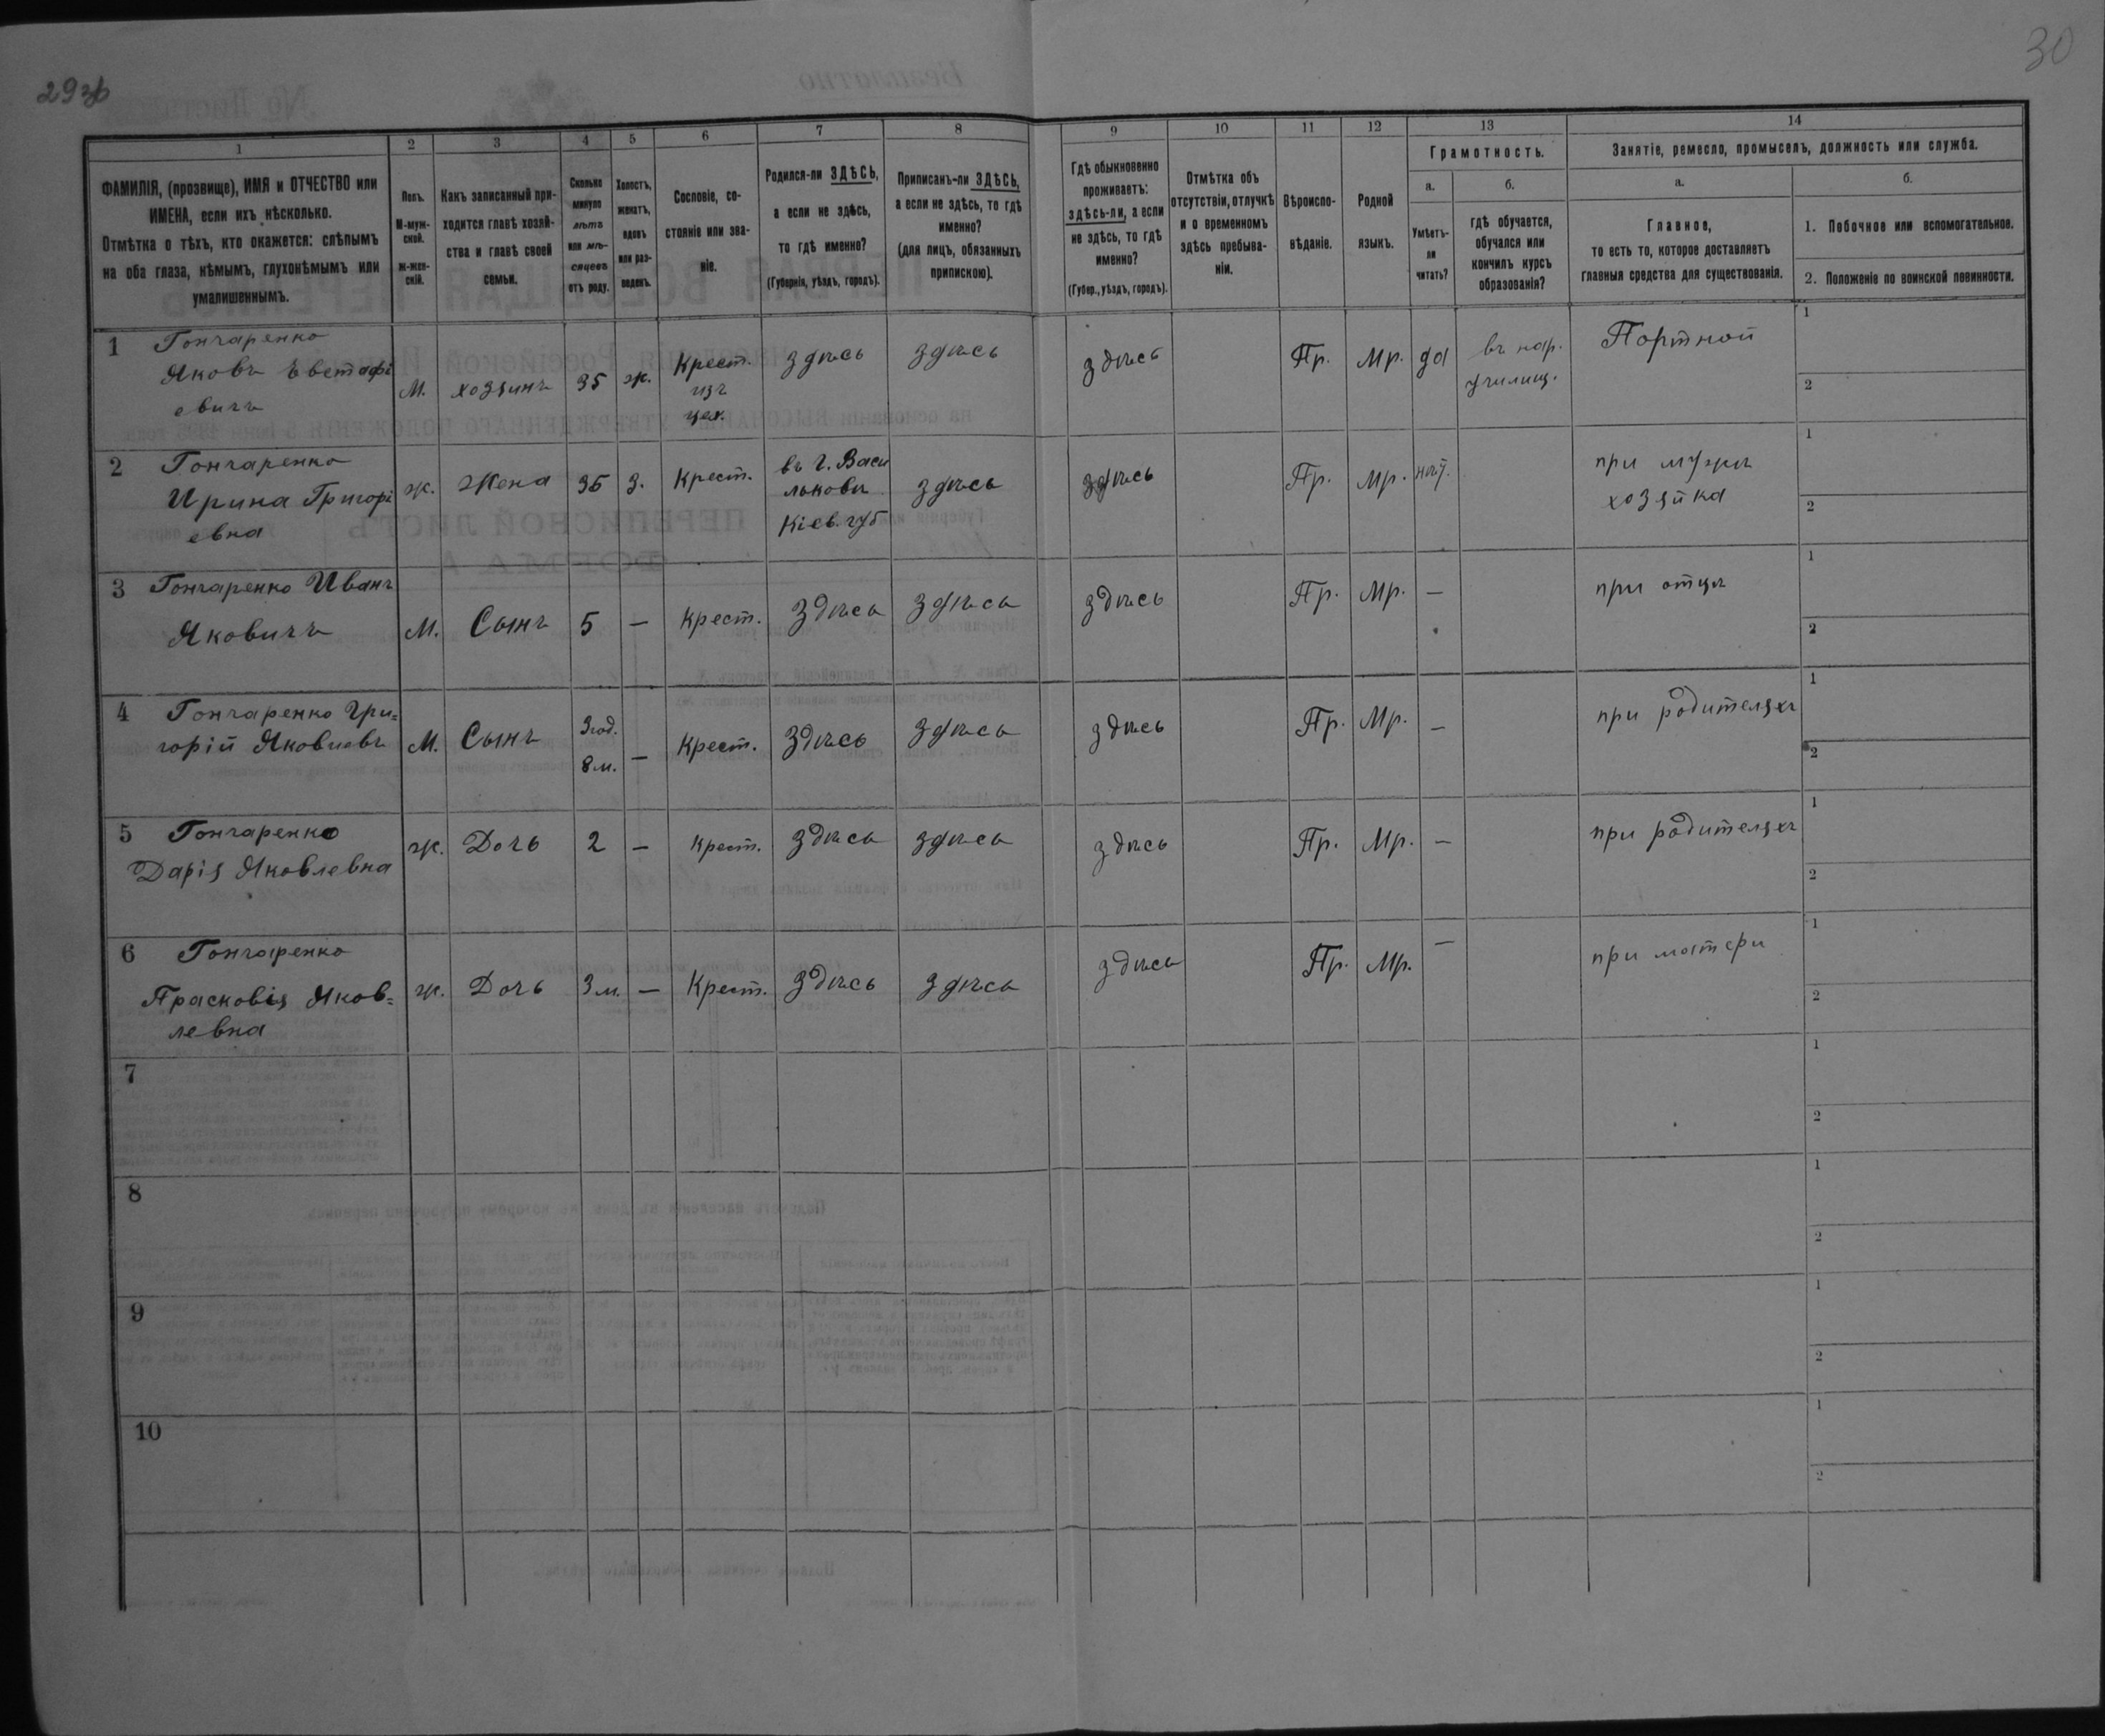 29зв
30
1 2 3 4 5 6 7 8 9 10 11 12 13 14
ФАМИЛІЯ, (прозвище), ИМЯ и ОТЧЕСТВО или
ИМЕНА, если ихъ нѣсколько.
Отмѣтка о тѣхъ, кто окажется: слѣпымъ
на оба глаза, нѣмымъ, глухонѣмымъ или
умалишеннымъ.
Полъ.
М-муж-
ской.
Ж-жен-
скій.
Какъ записанный при-
ходится главѣ хозяй-
ства и главѣ своей
семьи.
Сколько
минуло
лѣтъ
или мѣ-
сяцевъ
отъ роду.
Холостъ,
женатъ,
вдовъ
или раз-
веденъ.
Сословіе, со-
стояніе или зва-
ніе.
Родился-ли ЗДѢСЬ,
а если не здѣсь,
то гдѣ именно?
(Губернія, уѣздъ, городъ).
Приписанъ-ли ЗДѢСЬ,
а если не здѣсь, то гдѣ
именно?
(для лицъ, обязанныхъ
припискою).
Гдѣ обыкновенно
проживаетъ:
здѣсь-ли, а если
не здѣсь, то гдѣ
именно?
(Губер., уѣздъ, городъ).
Отмѣтка объ
отсутствіи, отлучкѣ
и о временномъ
здѣсь пребыва-
ніи.
Вѣроиспо-
вѣданіе.
Родной
языкъ.
Грамотность.
а.
Умѣетъ-
ли
читать?
б.
гдѣ обучается,
обучался или
кончилъ курсъ
образованія?
Занятіе, ремесло, промыселъ, должность или служба.
а.
Главное,
то есть то, которое доставляетъ
главныя средства для существованія.
б.
1. Побочное или вспомогательное.
2. Положеніе по воинской повинности.
1 Гончаренко
Яковъ Евстафі
евичъ
М.
хозяинъ
35
ж.
Крест.
изъ
цех.
здѣсь
здѣсь
здѣсь
Пр.
Мр.
да
въ нар.
училищ.
Портной
1
2
2 Гончаренко
Ирина Григорі
евна
ж.
Жена
35
З.
Крест.
въ г. Васи
льковѣ
Кіев. губ
здѣсь
здѣсь
Пр.
Мр.
нѣт.
при мужѣ
хозяйка
1
2
3 Гончаренко Иванъ
Яковичъ
М.
Сынъ
5
—
Крест.
здѣсь
здѣсь
здѣсь
Пр.
Мр.
—
при отцѣ
1
2
4 Гончаренко Гри=
горій Яковлевъ
М.
Сынъ
3 год.
8 м.
—
Крест.
здѣсь
здѣсь
здѣсь
Пр.
Мр.
—
при родителяхъ
1
2
5 Гончаренко
Дарія Яковлевна
ж.
Дочь
2
—
Крест.
здѣсь
здѣсь
здѣсь
Пр.
Мр.
—
при родителяхъ
1
2
6 Гончаренко
Прасковія Яков=
левна
ж.
Дочь
3 м.
—
Крест.
здѣсь
здѣсь
здѣсь
Пр.
Мр.
—
при матери
1
2
7
1
2
8
1
2
9
1
2
10
1
2